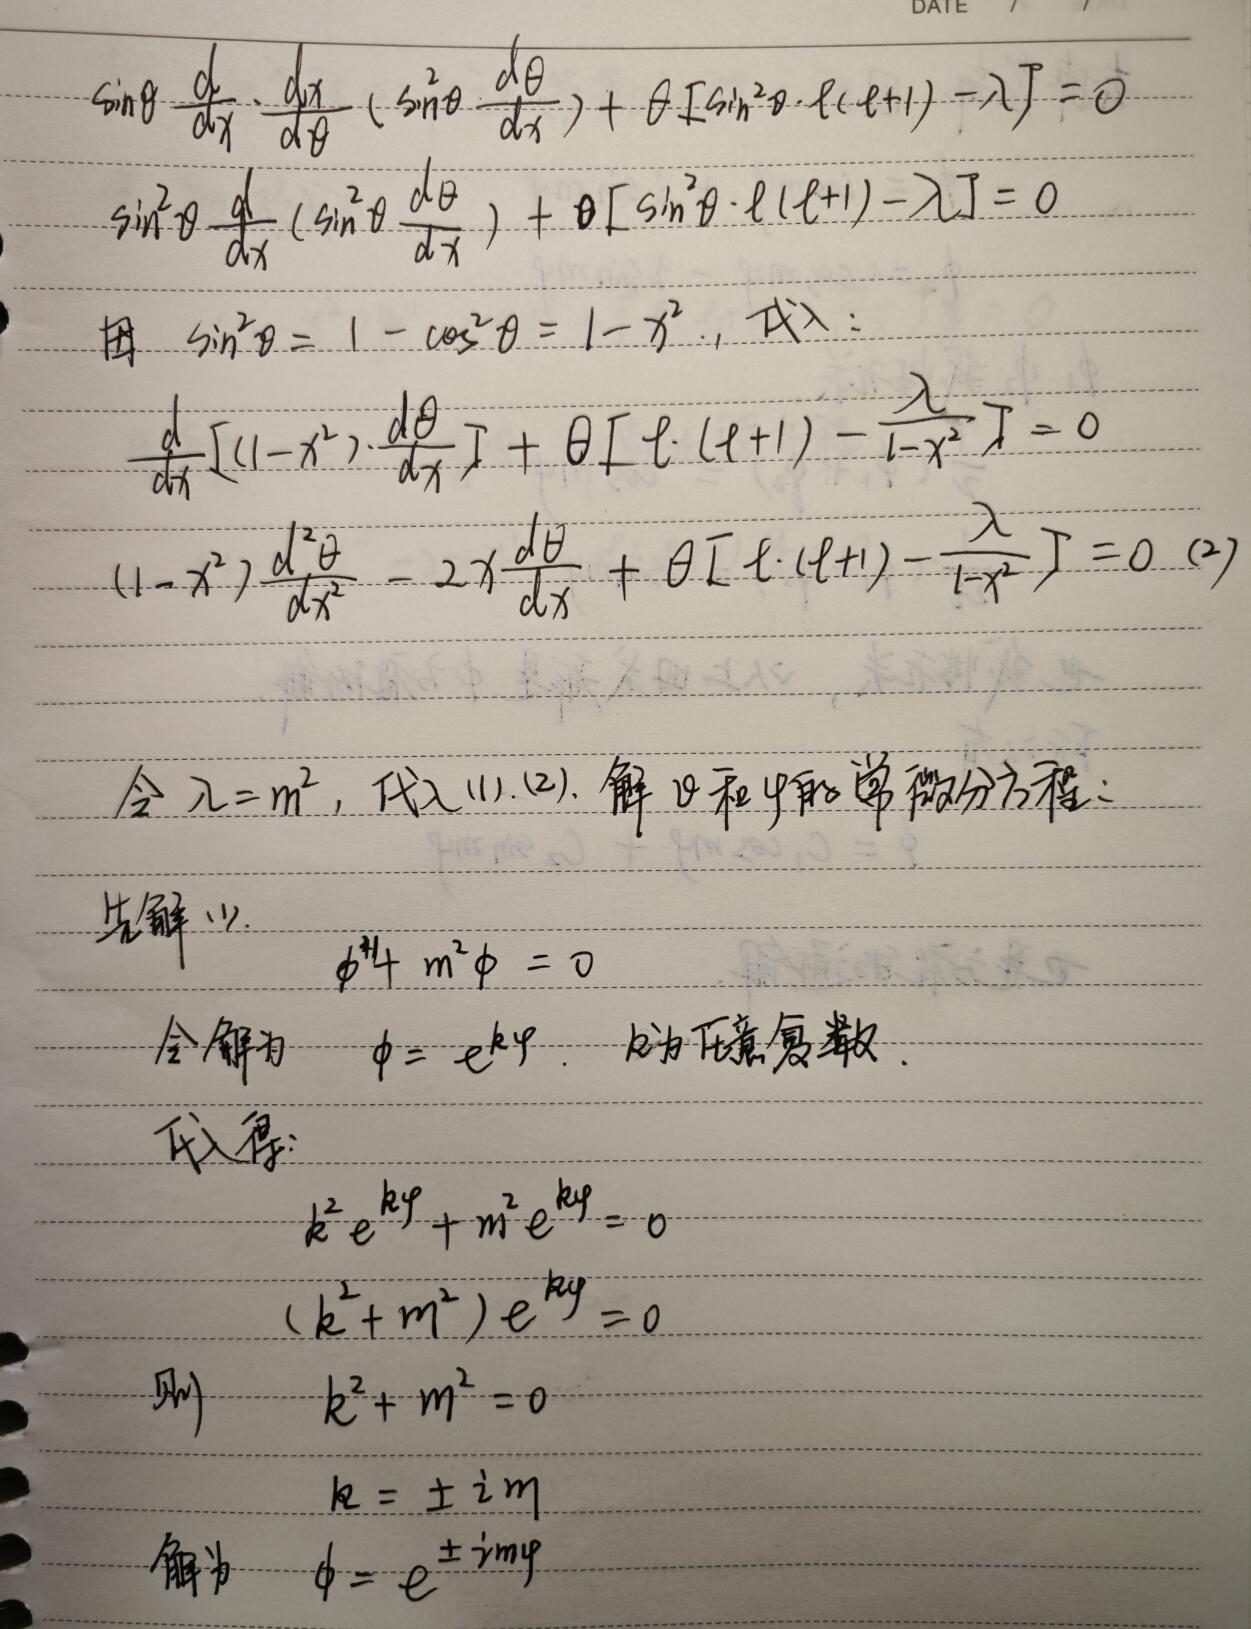 DATE / /
sinθ d/dx · dx/dθ (sin²θ dθ/dx) + θ[sin²θ·ℓ(ℓ+1) - λ] = 0
sin²θ d/dx (sin²θ dθ/dx) + θ[sin²θ·ℓ(ℓ+1) - λ] = 0
因 sin²θ = 1 - cos²θ = 1 - x², 代入:
d/dx [(1-x²)·dθ/dx] + θ[ℓ·(ℓ+1) - λ/(1-x²)] = 0
(1-x²) d²θ/dx² - 2x dθ/dx + θ[ℓ·(ℓ+1) - λ/(1-x²)] = 0 (2)
令 λ=m², 代入(1).(2). 解θ和φ的常微分方程:
先解(1).
ϕ'' + m²ϕ = 0
令解为 ϕ = e^{kφ}. k为任意复数.
代入得:
k²e^{kφ} + m²e^{kφ} = 0
(k²+m²)e^{kφ} = 0
则 k²+m² = 0
k = ±im
解为 ϕ = e^{±imφ}